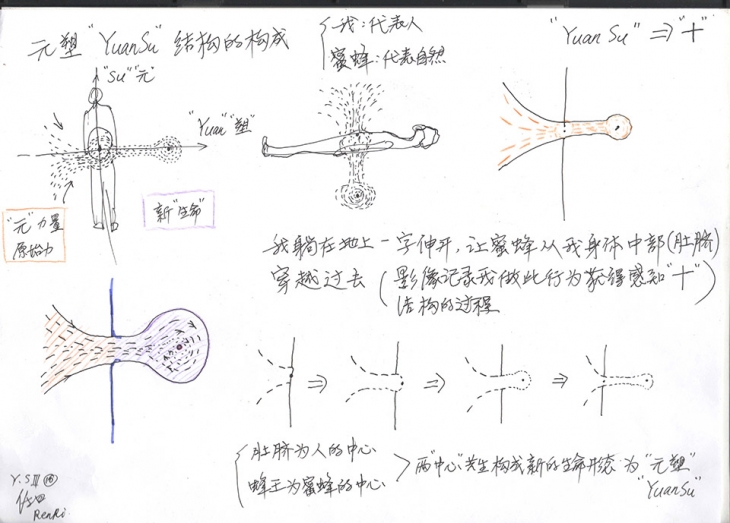 元塑 "YuanSu" 结构的构成
我:代表人
蜜蜂:代表自然
"YuanSu" ⇒ "十"
"Su" "元"
"Yuan" "塑"
"元"力量
原始力
新"生命"
我躺在地上一字伸开,让蜜蜂从我身体中部(肚脐)
穿越过去(影像记录我做此行为获得感知"十"
结构的过程)
肚脐为人的中心
蜂王为蜜蜂的中心
两"中心"共生构成新的生命形态为"元塑"
"YuanSu"
Y.SIII ⑯
RenRi